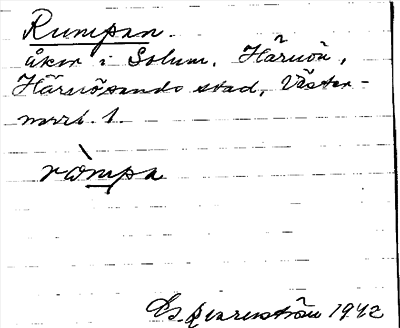 Rumpan.
åker i Solum, Härnön,
Härnösands stad, Väster-
norrl. l.
ròmpa
1942